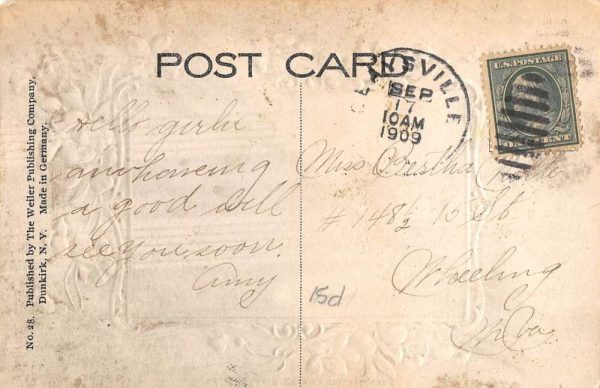 POST CARD
SVILLE
SEP
17
10AM
1909
U.S. POSTAGE
CENT
Hello girlie
am having
a good will
see you soon.
Amy
Miss
# 148½ 10 St
Wheeling
W. Va.
15d
No. 28. Published by The Weiler Publishing Company,
Dunkirk, N. Y. Made in Germany.